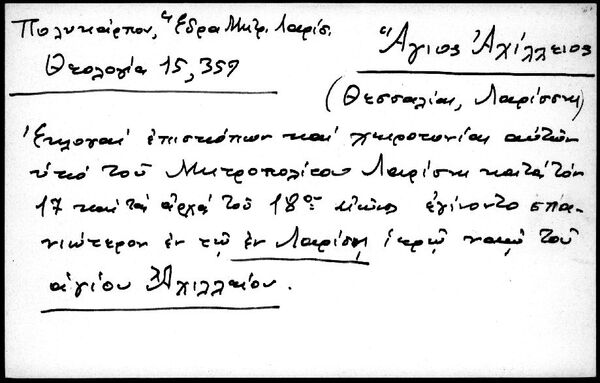 Πολυκάρπου, Ἕδρα Μητρ. Λαρίσ.
Θεολογία 15, 359
Ἅγιος Ἀχίλλειος
(Θεσσαλία, Λάρισσα)
Ἐκλογαὶ ἐπισκόπων καὶ χειροτονίαι αὐτῶν
ὑπὸ τοῦ Μητροπολίτου Λαρίσης κατὰ τὸν
17 καὶ τὰς ἀρχὰς τοῦ 18ου αἰῶνος ἐγίνοντο σπα-
νιώτερον ἐν τῷ ἐν Λαρίσῃ ἱερῷ ναῷ τοῦ
ἁγίου Ἀχιλλείου.